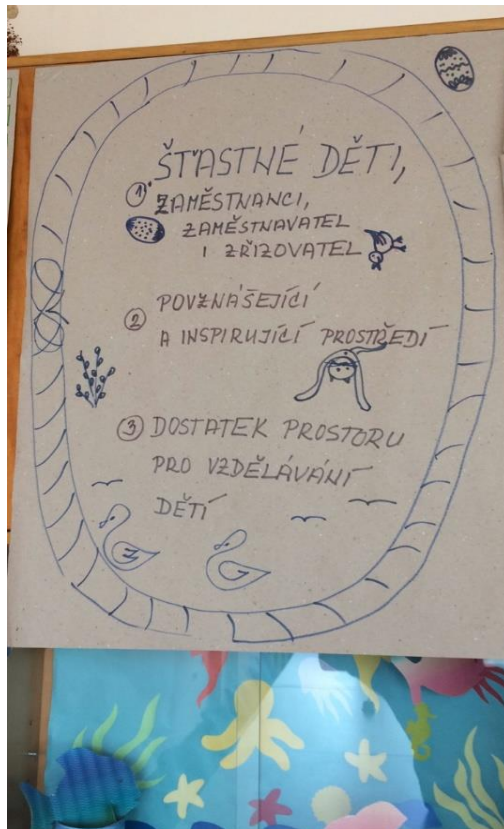 ŠŤASTNÉ DĚTI,
① ZAMĚSTNANCI,
ZAMĚSTNAVATEL
I ZŘIZOVATEL
② POVZNÁŠEJÍCÍ
A INSPIRUJÍCÍ PROSTŘEDÍ
③ DOSTATEK PROSTORU
PRO VZDĚLÁVÁNÍ
DĚTÍ